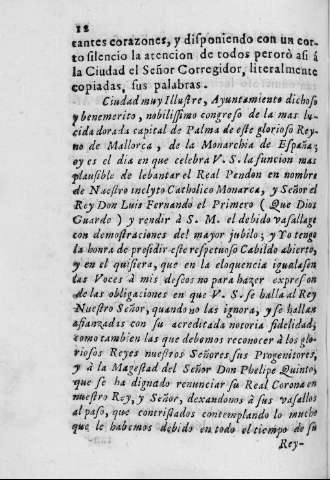 12
tantes corazones, y disponiendo con un cor-
to silencio la atencion de todos perorò asi á
la Ciudad el Señor Corregidor, literalmente
copiadas, sus palabras.
Ciudad muy Illustre, Ayuntamiento dichoso
y benemerito, nobilissimo congreso de la mas lu-
cida dorada capital de Palma de este glorioso Rey-
no de Mallorca, de la Monarchia de España;
oy es el dia en que celebra V. S. la funcion mas
plausible de lebantar el Real Pendon en nombre
de Nuestro inclyto Catholico Monarca, y Señor el
Rey Don Luis Fernando el Primero ( Que Dios
Guarde ) y rendir à S. M. el debido vasallage
con demostraciones del mayor jubilo; y Yo tengo
la honra de presidir este respetuoso Cabildo abierto,
y en el quisiera, que en la eloquencia igualasen
las Voces à mis deseos no para hazer expresion
de las obligaciones en que V. S. se balla al Rey
Nuestro Señor, quando no las ignora, y se hallan
afianzadas con su acreditada notoria fidelidad,
como tambien las que debemos reconocer à los glo-
riosos Reyes nuestros Señores sus Progenitores,
y à la Magestad del Señor Don Phelipe Quinto,
que se ha dignado renunciar su Real Corona en
nuestro Rey, y Señor, dexandonos à sus vasallos
al paso, que contristados contemplando lo mucho
que le habemos debido en todo el tiempo de su
Rey-